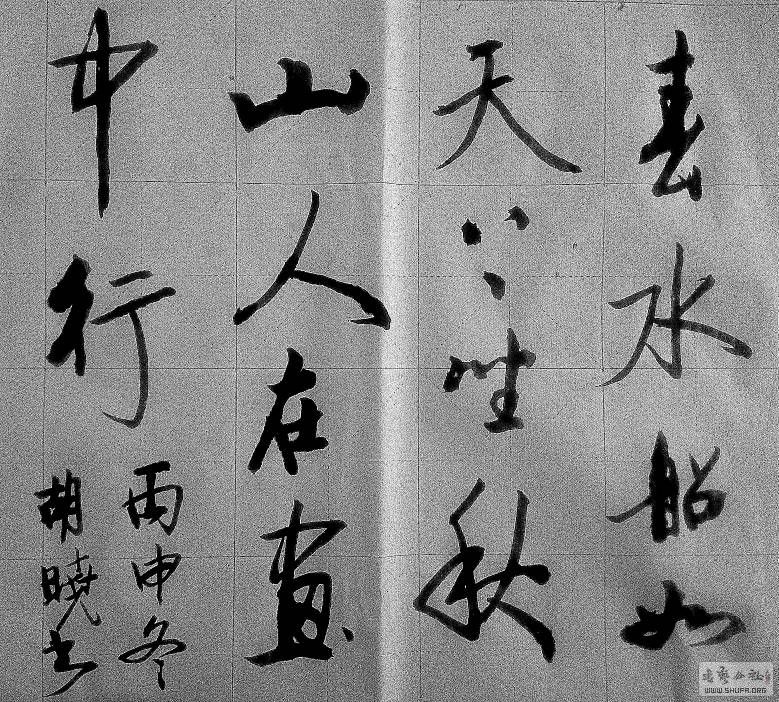 春水船如
天上坐秋
山人在畫
中行
丙申冬
胡曉书
WWW.SHUFA.ORG